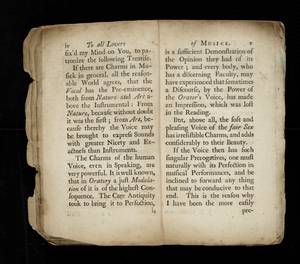 iv To all Lovers
fix'd my Mind on You, to pa-
tronize the following Treatise.
If there are Charms in Mu-
sick in general, all the reason-
able World agrees, that the
Vocal has the Pre-eminence,
both from Nature and Art a-
bove the Instrumental: From
Nature, because without doubt
it was the first; from Art, be-
cause thereby the Voice may
be brought to express Sounds
with greater Nicety and Ex-
actness than Instruments.
The Charms of the human
Voice, even in Speaking, are
very powerful. It is well known,
that in Oratory a just Modula-
tion of it is of the highest Con-
sequence. The Care Antiquity
took to bring it to Perfection,
is
of MUSICK. v
is a sufficient Demonstration of
the Opinion they had of its
Power; and every body, who
has a discerning Faculty, may
have experienced that sometimes
a Discourse, by the Power of
the Orator's Voice, has made
an Impression, which was lost
in the Reading.
But, above all, the soft and
pleasing Voice of the fair Sex
has irresistible Charms, and adds
considerably to their Beauty.
If the Voice then has such
singular Prerogatives, one must
naturally wish its Perfection in
musical Performances, and be
inclined to forward any thing
that may be conducive to that
end. This is the reason why
I have been the more easily
pre-